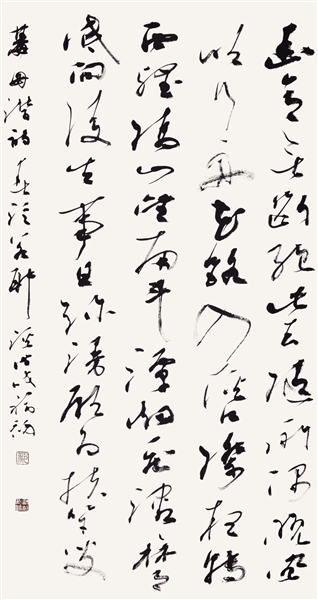 幽意無斷絕此去隨所偶晚風
吹行舟花路入溪口際夜轉
西壑隔山望南斗潭烟飛溶溶林月
低向後生事且弥漫願為持竿叟
綦毋潛詩春泛若耶溪戊戌